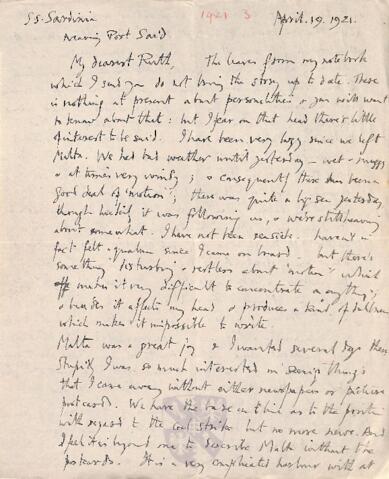 SS. Sardinia 1921 3 April. 19. 1921.
nearing Port Said
My dearest Ruth, The leaves from my notebook
which I send you do not bring the story up to date. There
is nothing at present about personalities & you will want
to know about that: but I fear on that head there's little
of interest to be said. I have been very lazy since we left
Malta. We had bad weather until yesterday – wet & muggy
& at times very windy; & consequently there has been a
good deal of 'motion'; there was quite a big sea yesterday
though luckily it was following us, & we're still heaving
about somewhat. I have not been seasick – haven't in
fact felt a qualm since I came on board. but there's
something disturbing & restless about 'motion' which
makes it very difficult to concentrate on anything;
& besides it affects my head & produces a kind of dullness
which makes it impossible to write.
Malta was a great joy & I wanted several days there
Stupidly I was so much interested in seeing things
that I came away without either newspapers or picture
postcards. We have the bare as to the position
with regard to the coal strike but no more news. And
I feel it is beyond me to describe Malta without the
postcards. It is a very complicated harbour with at